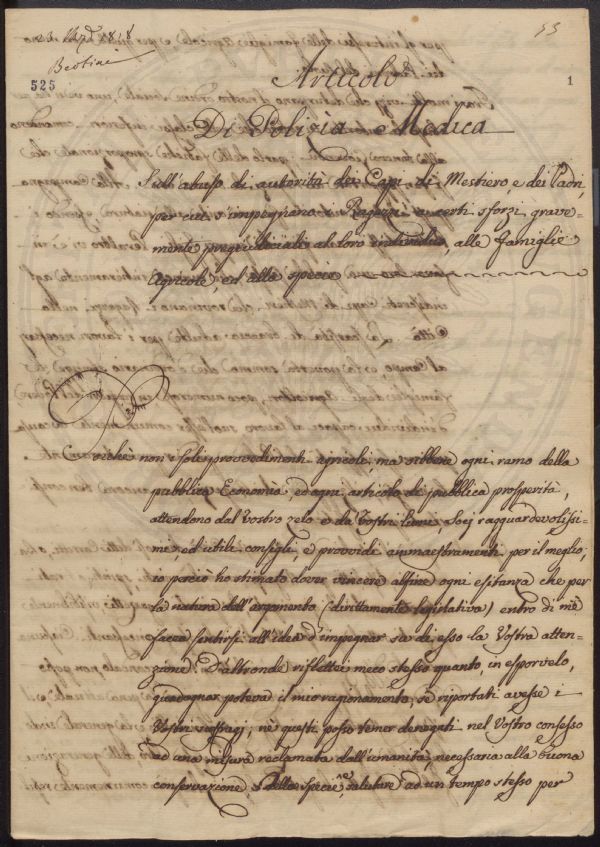 23. 1818
Bertini
53
525
1
Articolo
Di Polizia Medica
Sull'abuso di autorità dei Capi di Mestiero, e dei Padri,
per cui s'impegnano i Ragazzi a certi sforzi grave-
mente pregiudiciali al loro individuo, alle famiglie
Agricole ed alla specie
Poichè non i soli provvedimenti agricoli, ma sibbene ogni ramo della
pubblica Economia, ed ogni articolo di pubblica prosperità,
attendono dal Vostro zelo e da Vostri lumi, Socj ragguardevolissi-
mi, ed utili consigli, e provvidi ammaestramenti per il meglio;
io perciò ho stimato dover vincere alfine ogni esitanza che per
la natura dell'argomento (direttamente legislativa) entro di me
facea sentirsi all'idea d'impegnar su di esso la Vostra atten-
zione. D'altronde riflettei meco stesso quanto, in esporvelo,
guadagnar poteva il mio ragionamento, se riportati avesse i
Vostri suffragj; nè questi posso temer denegati nel Vostro consesso
ad una misura reclamata dall'umanità, necessaria alla buona
conservazione della specie, e salutare ad un tempo stesso per